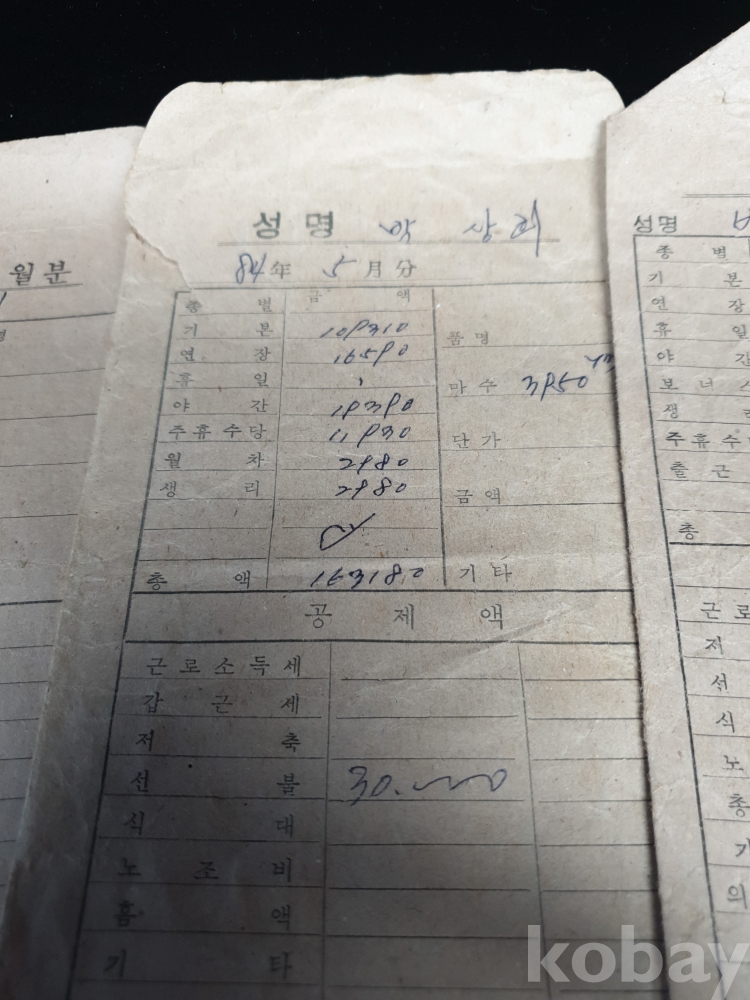 월분
성명 박 상희
84年 5月分
종별 금액
기본 109310
연장 16590
휴일
야간 19390
주휴수당 11930
월차 2980
생리 2980
총액 163180
품명
마수 3950
단가
금액
기타
공제액
근로소득세
갑근세
저축
선불 30.000
식대
노조비
홈액
기타
성명
종별
기본
연장
휴일
야간
보너스
생
주휴수
출근
총
근로
저
선
식
노
총
기
의
kobay